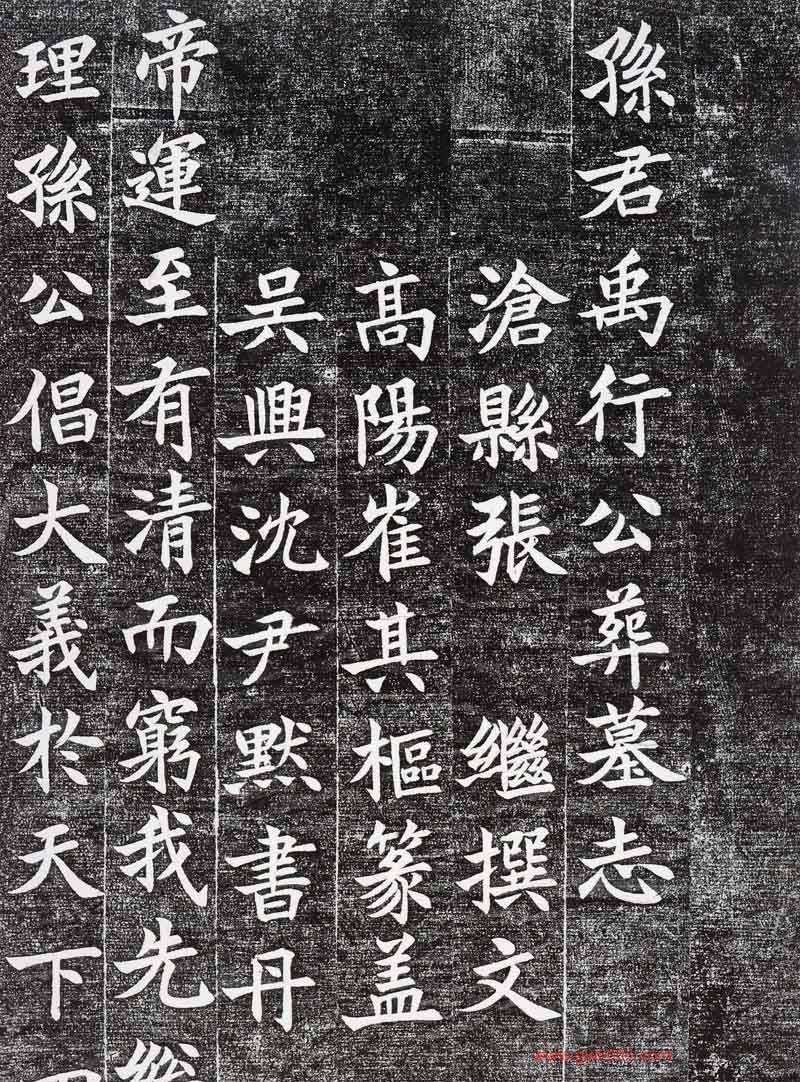 孫君禹行公葬墓志
滄縣張 繼撰文
高陽崔其樞篆盖
吴興沈尹默書丹
帝運至有清而窮我先總
理孫公倡大義於天下